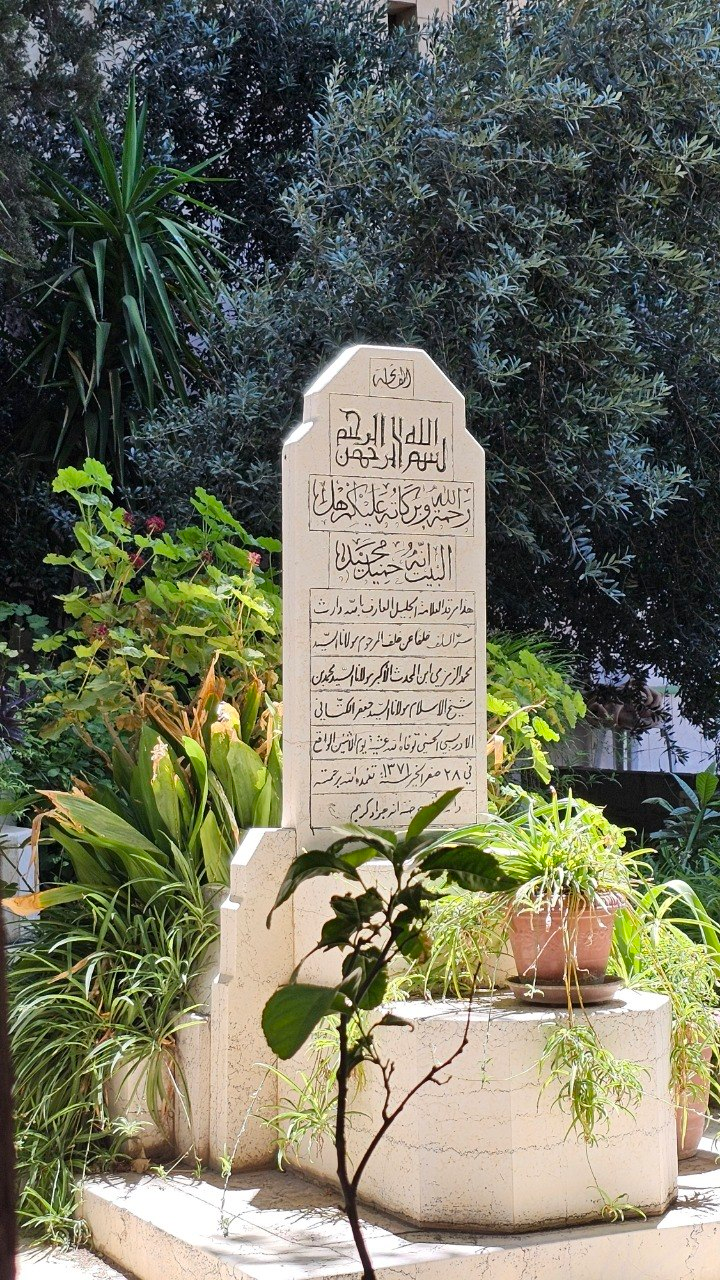 الفاتحة
بسم الله الرحمن الرحيم
رحمة الله وبركاته عليكم اهل
البيت انه حميد مجيد
هذا مرقد العلامة الجليل العارف بالله وارث
سر السلف خلفا عن خلف المرحوم مولانا السيد
محمد الزمزمي ابن المحدث الأكبر مولانا السيد محمد بن
شيخ الاسلام مولانا السيد جعفر الكتاني
الادريسي الحسني توفاه الله عشية يوم الاثنين الواقع
في ٢٨ صفر الخير سنة ١٣٧١ تغمده الله برحمته
جنته انه جواد كريم